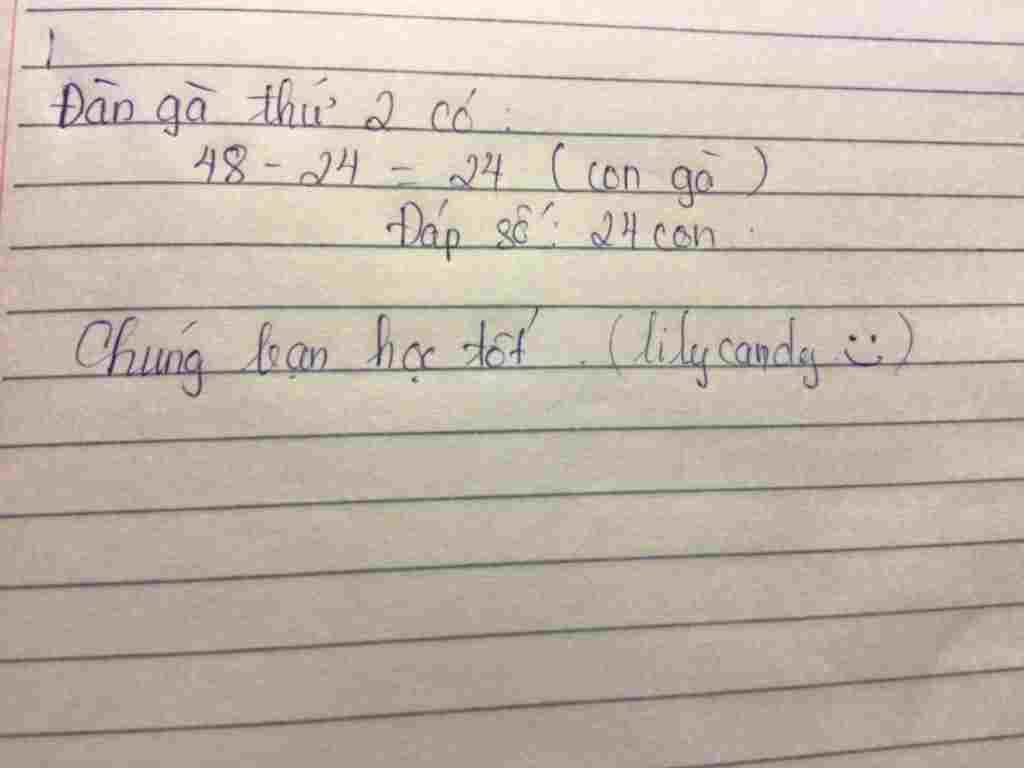 Đàn gà thứ 2 có :
48 - 24 = 24 (con gà)
Đáp số : 24 con .
Chúng bạn học tốt . (lilycandy :))